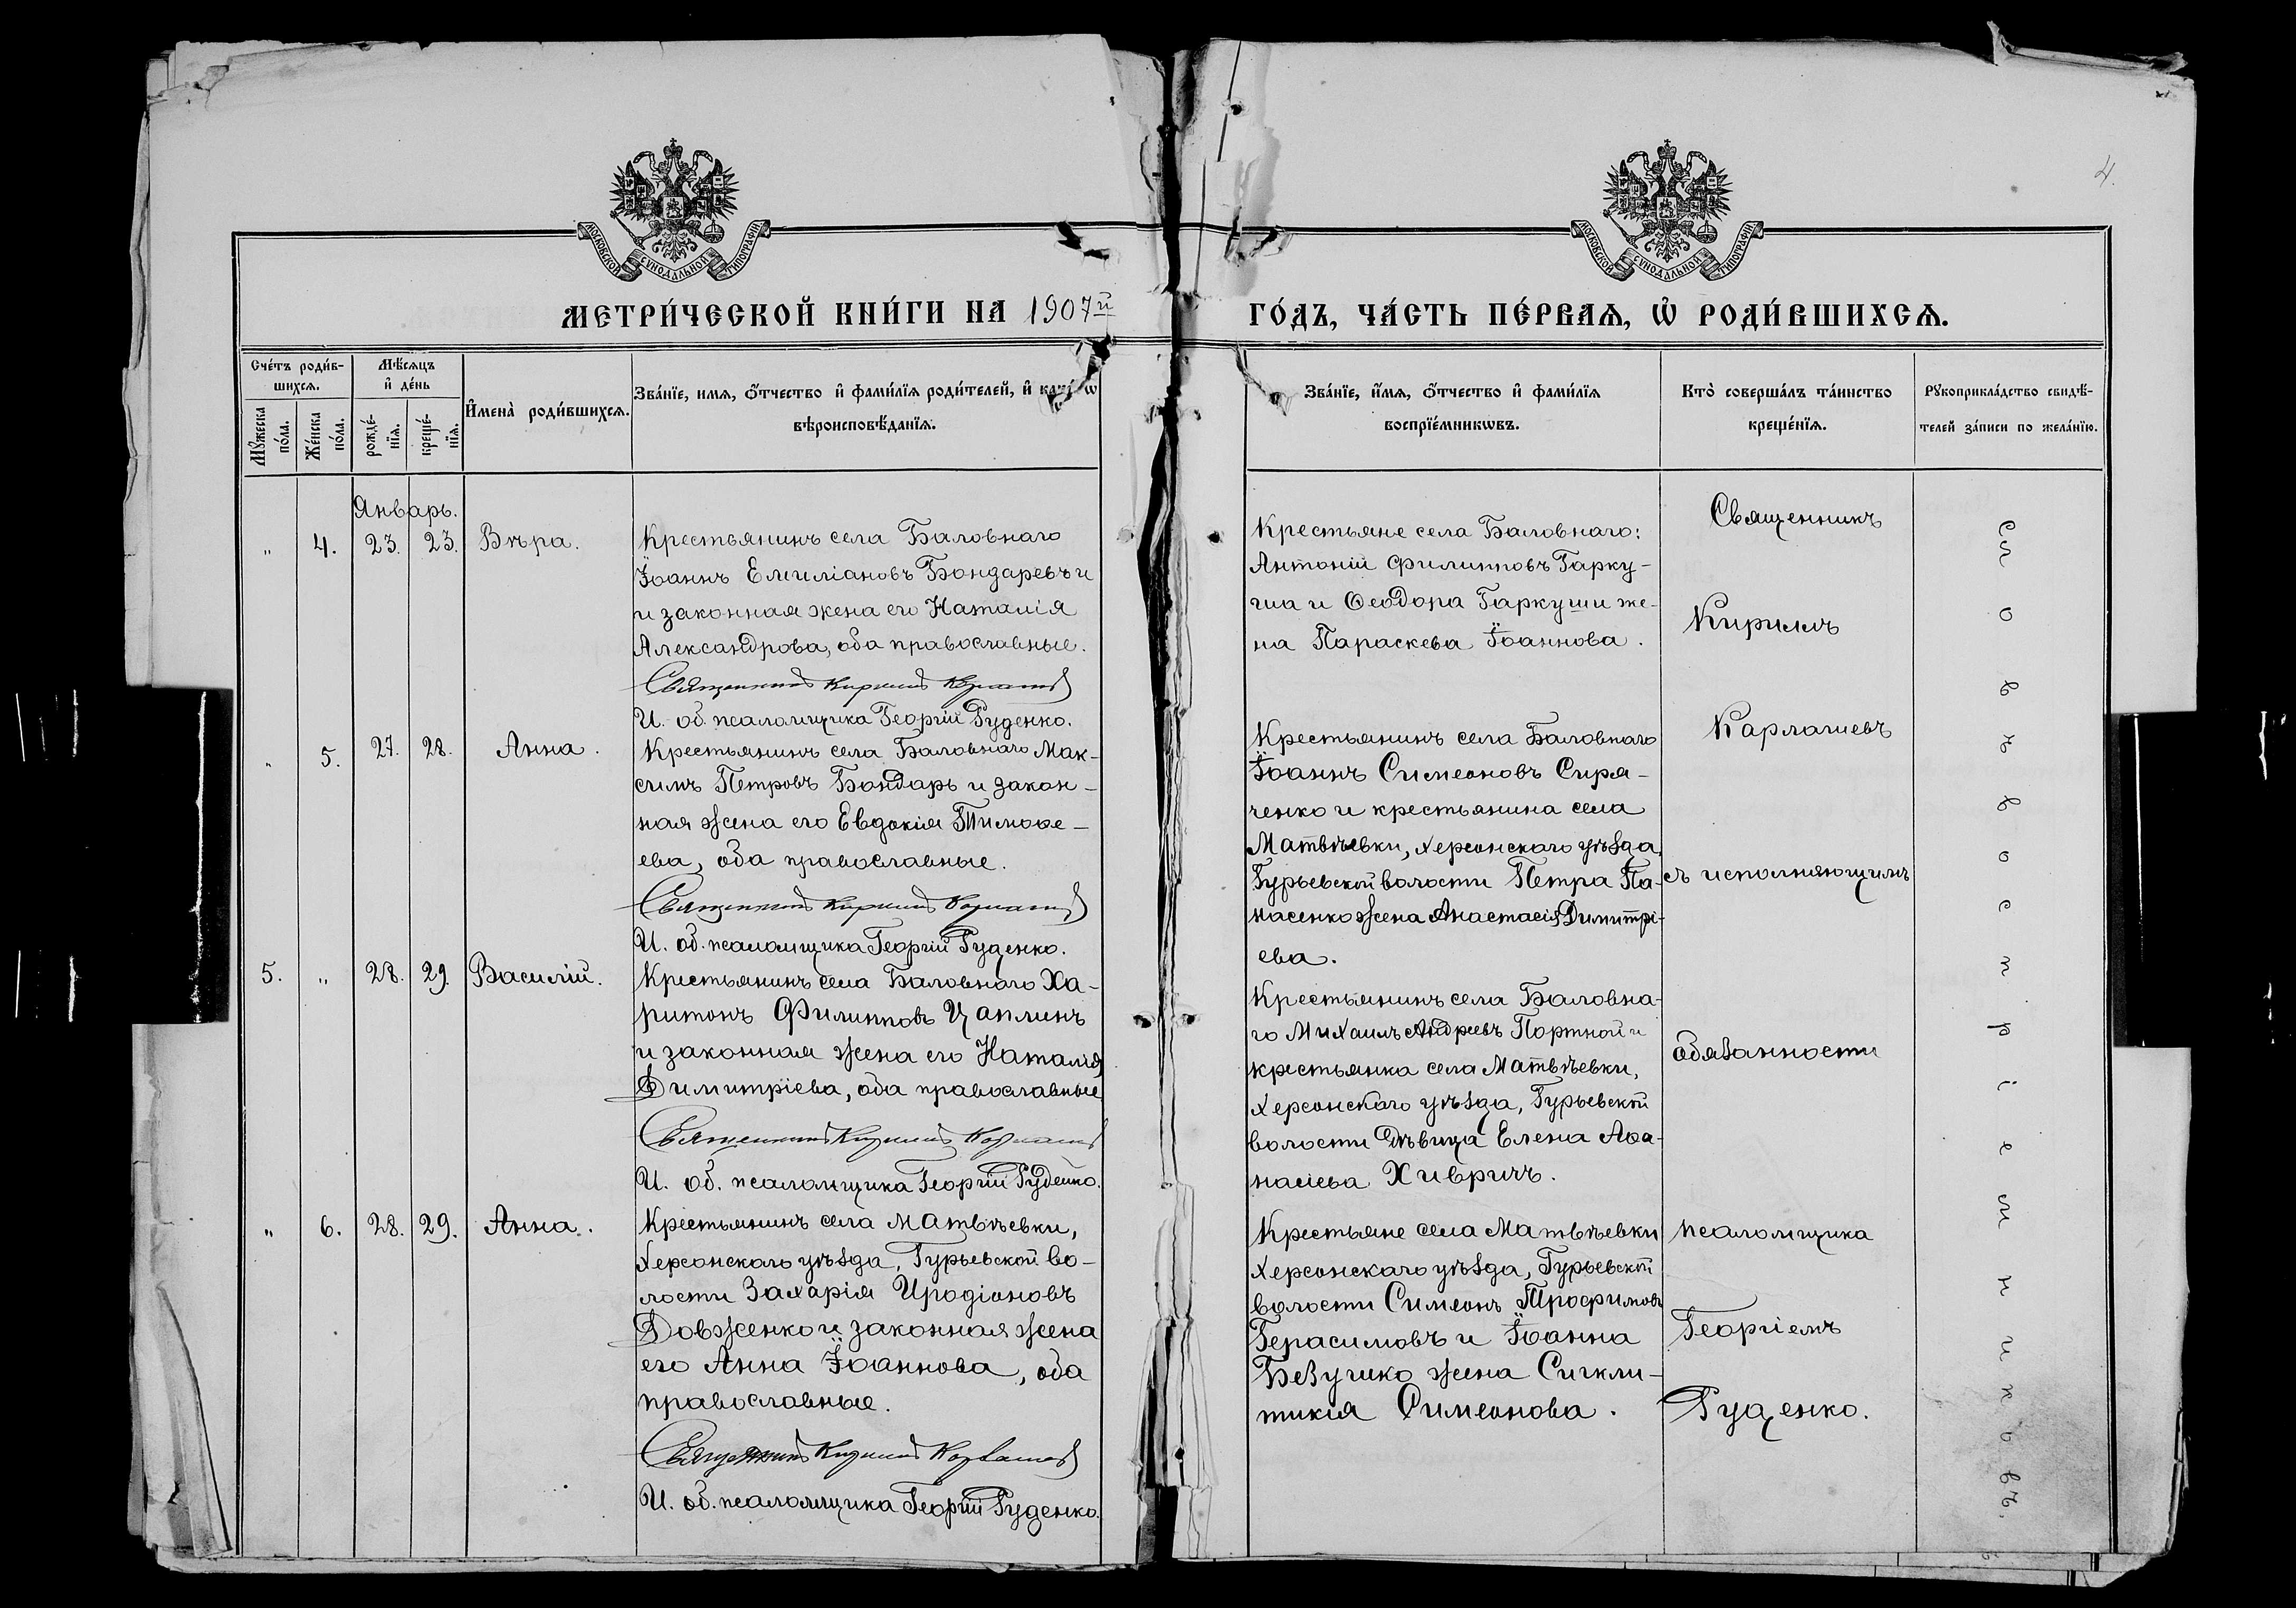 4.
МОСКОВСКОЙ СУНОДАЛЬНОЙ ТИПОГРАФІИ
МОСКОВСКОЙ СУНОДАЛЬНОЙ ТИПОГРАФІИ
МЕТРИ́ЧЕСКОЙ КНИ́ГИ НА 1907й
ГО́ДЪ, ЧА́СТЬ ПЕ́РВАѦ, Ѡ҆ РОДИ́ВШИХСѦ.
Сче́тъ роди́в-
шихсѧ.
Мꙋжеска
по́ла.
Же́нска
по́ла.
Мѣ́сѧцъ
и҆ де́нь
рожде́-
нїѧ.
креще́-
нїѧ.
И҆мена̀ роди́вшихсѧ.
Зва́нїе, имѧ, ѻ҆́тчество и҆ фами́лїѧ роди́телей, и҆
вѣроисповѣ́данїѧ.
Зва́нїе, и҆́мѧ, ѻ҆́тчество и҆ фами́лїѧ
воспрїе́мникѡвъ.
Кто̀ соверша́лъ та́инство
креще́нїѧ.
Рꙋкоприкла́дство свидѣ́-
телей за́писи по жела́нїю.
Январь.
" 4. 23. 23. Вѣра.
Крестьянинъ села Баловнаго
Іоаннъ Емиліановъ Бондаревъ и
и законная жена его Наталія
Александрова, оба православные.
Священникъ Кириллъ Карлашевъ
И. об. псаломщика Георгій Руденко.
Крестьяне села Баловнаго:
Антоній Филипповъ Гарку-
ша и Ѳеодора Гаркуши же-
на Параскева Іоаннова.
" 5. 27. 28. Анна.
Крестьянинъ села Баловнаго Мак-
симъ Петровъ Бондарь и закон-
ная жена его Евдокія Тимоѳе-
ева, оба православные.
Священникъ Кириллъ Карлашевъ
И. об. псаломщика Георгій Руденко.
Крестьянинъ села Баловнаго
Іоаннъ Симеоновъ Сиря-
ченко и крестьянина села
Матвѣевки, Херсонскаго уѣзда,
Гурьевской волости Петра Па-
насенко жена Анастасія Димитрі-
ева.
5. " 28. 29. Василій.
Крестьянинъ села Баловнаго Ха-
ритонъ Филипповъ Цаплинъ
и законная жена его Наталія
Димитріева, оба православные
Священникъ Кириллъ Карлашевъ
И. об. псаломщика Георгій Руденко.
Крестьянинъ села Баловна-
го Михаилъ Андреевъ Портной и
крестьянка села Матвѣевки,
Херсонскаго уѣзда, Гурьевской
волости дѣвица Елена Аѳа-
насіева Хивричъ.
" 6. 28. 29. Анна.
Крестьянинъ села Матвѣевки,
Херсонскаго уѣзда, Гурьевской во-
лости Захарія Иродіоновъ
Довженко и законная жена
его Анна Іоаннова, оба
православные.
Священникъ Кириллъ Карлашевъ
И. об. псаломщика Георгій Руденко.
Крестьяне села Матвѣевки
Херсонскаго уѣзда, Гурьевской
волости Симеонъ Трофимовъ
Герасимовъ и Іоанна
Безушко жена Сигкли-
тикія Симеонова.
Священникъ
Кириллъ
Карлашевъ
съ исполняющимъ
обязанности
псаломщика
Георгіемъ
Руденко.